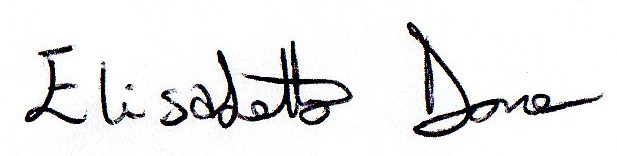 Elisabetta Dona